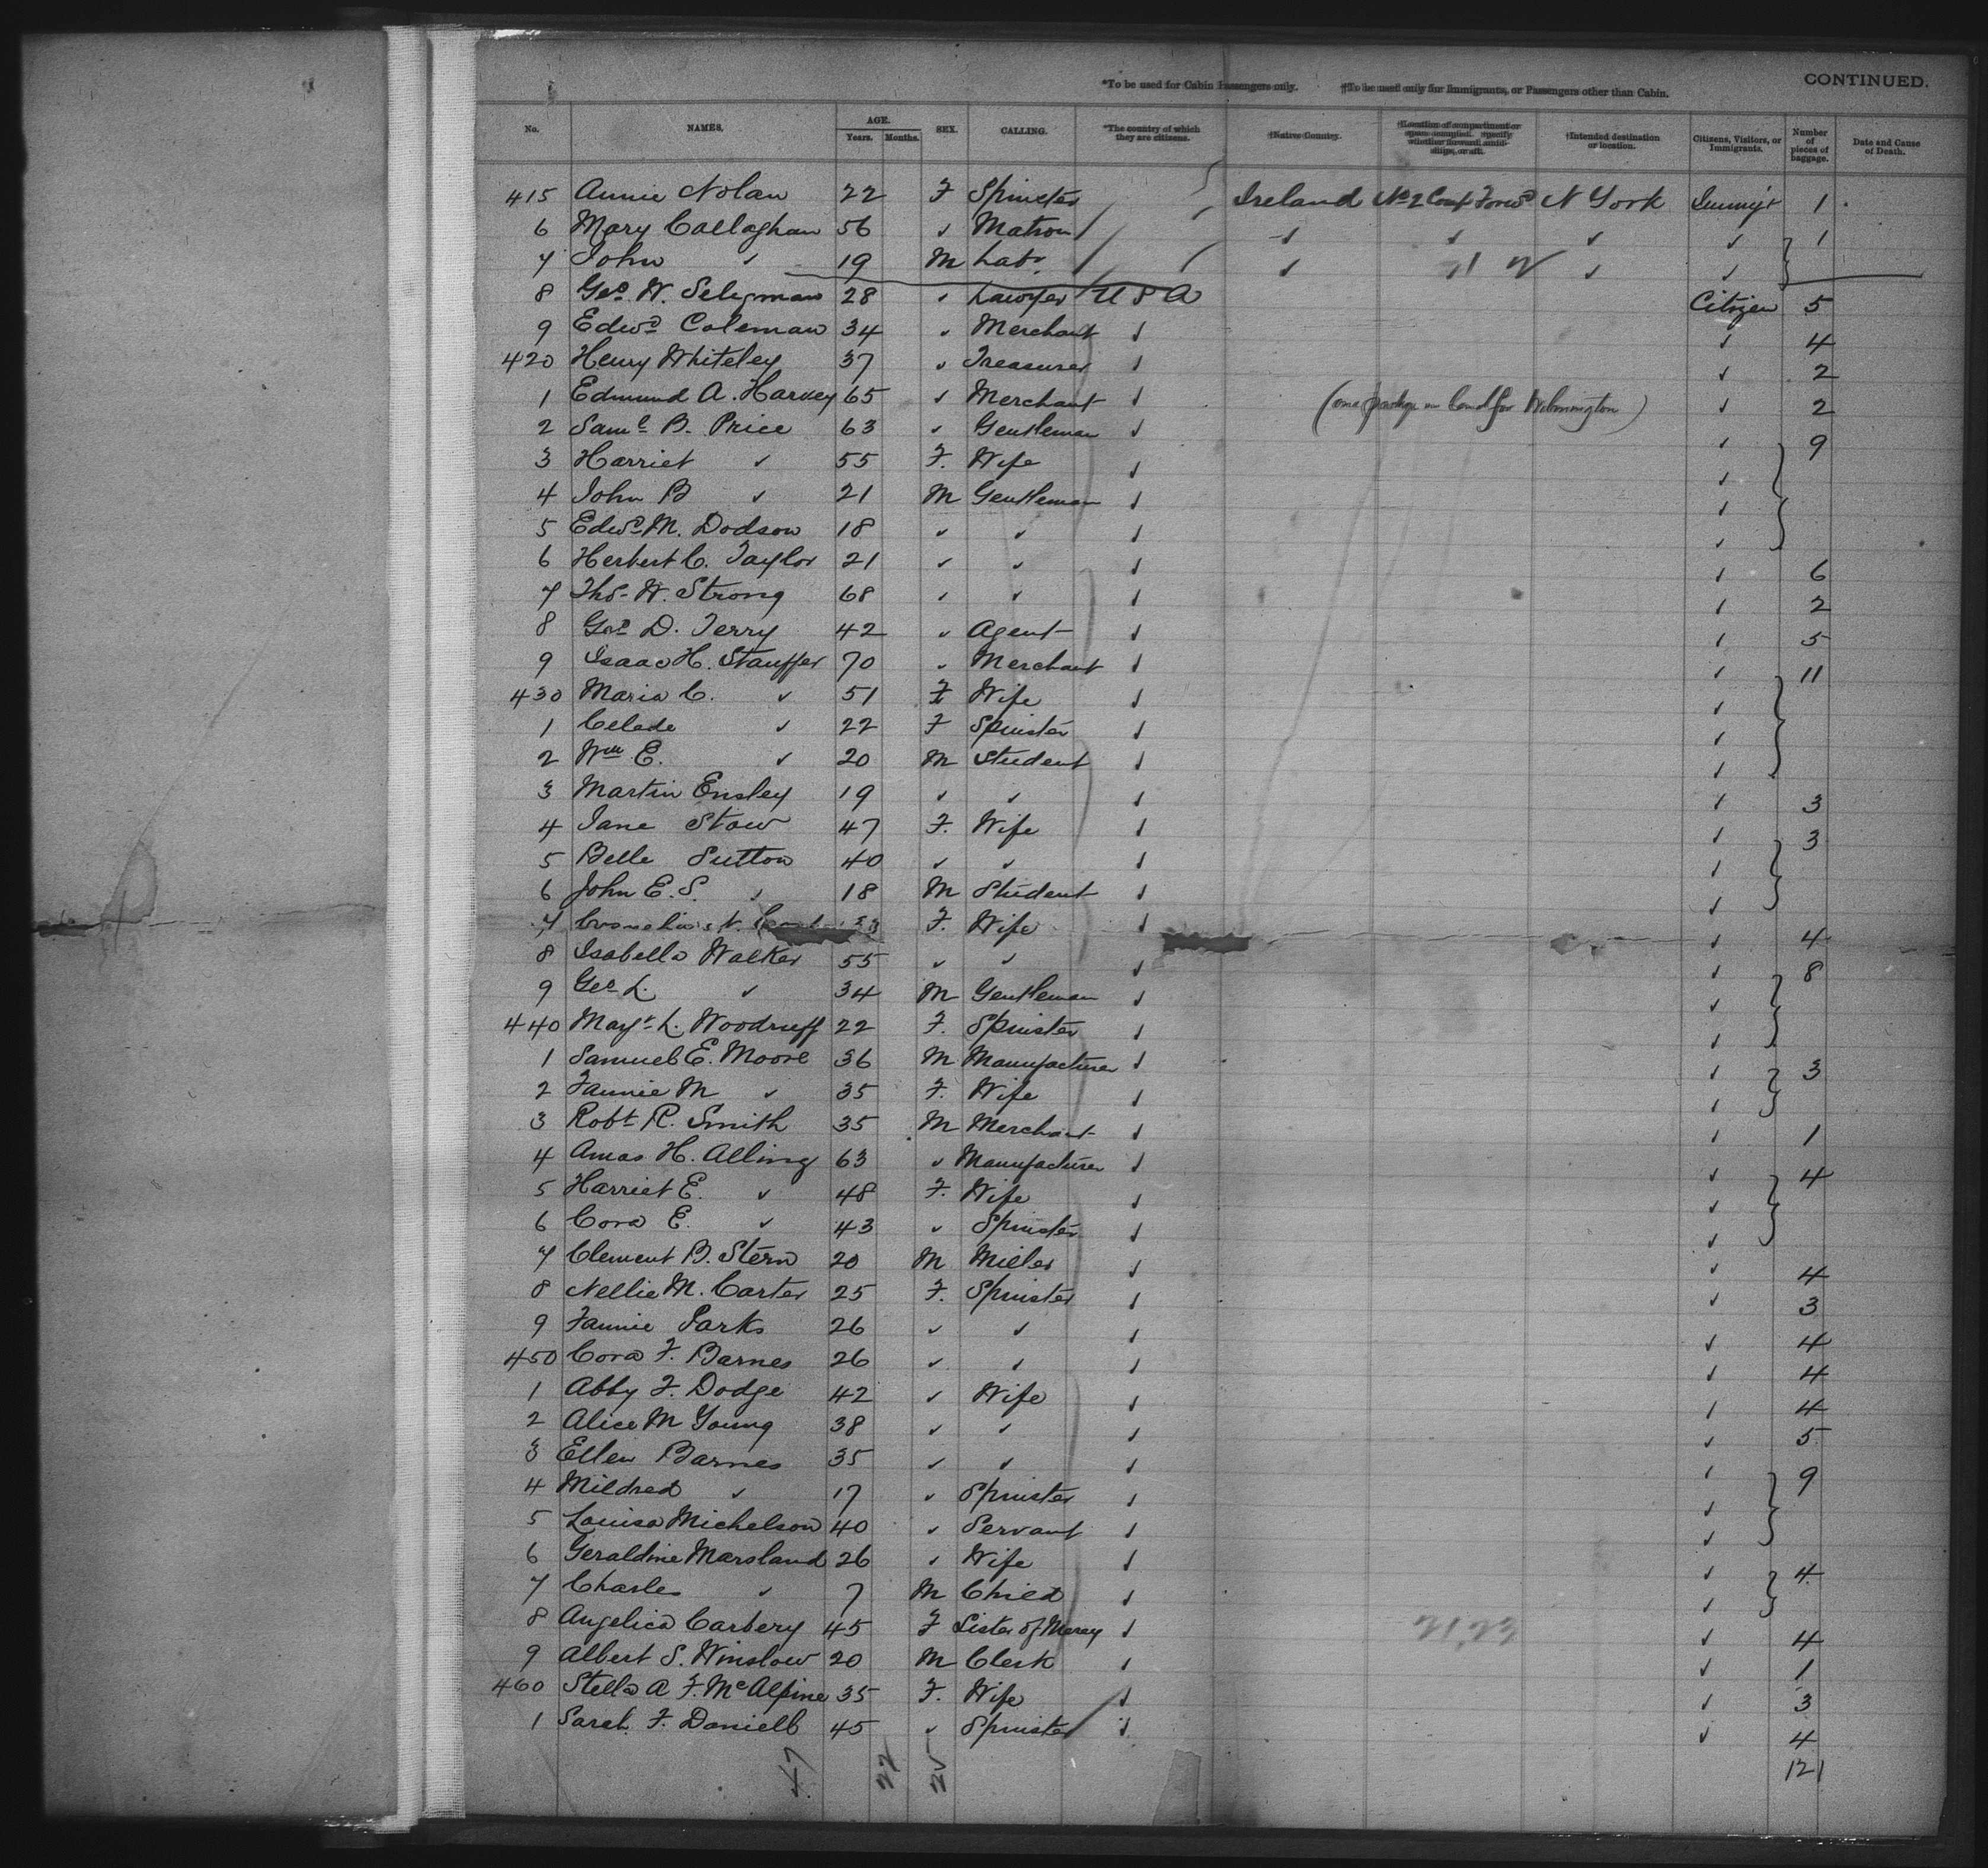 CONTINUED.
*To be used for Cabin Passengers only. †To be used only for Immigrants, or Passengers other than Cabin.
No. NAMES. AGE. Years. Months. SEX. CALLING. *The country of which they are citizens. †Native Country. †Location of compartment or space occupied. Specify whether forward, amidships, or aft. †Intended destination or location. Citizens, Visitors, or Immigrants. Number of pieces of baggage. Date and Cause of Death.
415 Annie Nolan 22 F Spinster Ireland No 2 Comp Forwd N York Immigt 1
6 Mary Callaghan 56 ✓ Matron ✓ ✓ ✓ ✓ 1
7 John ✓ 19 M Labr ✓ ✓ ✓
8 Geo. W. Seligman 28 ✓ Lawyer U S A Citizen 5
9 Edwd Coleman 34 ✓ Merchant ✓ ✓ 4
420 Henry Whiteley 37 ✓ Treasurer ✓ ✓ 2
1 Edmund A. Harvey 65 ✓ Merchant ✓ (one package in bond for Wilmington) ✓ 2
2 Saml B. Price 63 ✓ Gentleman ✓ ✓ 9
3 Harriet ✓ 55 F. Wife ✓ ✓
4 John B ✓ 21 M Gentleman ✓ ✓
5 Edwd M. Dodson 18 ✓ ✓ ✓ ✓
6 Herbert C. Taylor 21 ✓ ✓ ✓ ✓ 6
7 Thos. W. Strong 68 ✓ ✓ ✓ ✓ 2
8 Geo D. Terry 42 ✓ Agent ✓ ✓ 5
9 Isaac H. Stauffer 70 ✓ Merchant ✓ ✓ 11
430 Maria C. ✓ 51 F Wife ✓ ✓
1 Celeste ✓ 22 F Spinster ✓ ✓
2 Wm E. ✓ 20 M Student ✓ ✓
3 Martin Ensley 19 ✓ ✓ ✓ ✓ 3
4 Jane Stow 47 F. Wife ✓ ✓ 3
5 Belle Sutton 40 ✓ ✓ ✓ ✓
6 John E. S. ✓ 18 M Student ✓ ✓
7 F. Wife ✓ ✓ 4
8 Isabella Walker 55 ✓ ✓ ✓ ✓ 8
9 Geo L. ✓ 34 M Gentleman ✓ ✓
440 Magt L. Woodruff 22 F. Spinster ✓ ✓
1 Samuel E. Moore 36 M Manufacturer ✓ ✓ 3
2 Fannie M ✓ 35 F. Wife ✓ ✓
3 Robt R. Smith 35 M Merchant ✓ ✓ 1
4 Amos H. Alling 63 ✓ Manufacturer ✓ ✓ 4
5 Harriet E. ✓ 48 F. Wife ✓ ✓
6 Cora E. ✓ 43 ✓ Spinster ✓ ✓
7 Clement B. Stern 20 M Miller ✓ ✓ 4
8 Nellie M. Carter 25 F. Spinster ✓ ✓ 3
9 Fannie Parks 26 ✓ ✓ ✓ ✓ 4
450 Cora F. Barnes 26 ✓ ✓ ✓ ✓ 4
1 Abby F. Dodge 42 ✓ Wife ✓ ✓ 4
2 Alice M Young 38 ✓ ✓ ✓ ✓ 5
3 Ellen Barnes 35 ✓ ✓ ✓ ✓ 9
4 Mildred ✓ 17 ✓ Spinster ✓ ✓
5 Louisa Michelson 40 ✓ Servant ✓ ✓
6 Geraldine Marsland 26 ✓ Wife ✓ ✓ 4
7 Charles ✓ 7 M Child ✓ ✓
8 Angelica Carbery 45 F Sister of Mercy ✓ ✓ 4
9 Albert S. Winslow 20 M Clerk ✓ ✓ 1
460 Stella A. F. McAlpine 35 F. Wife ✓ ✓ 3
1 Sarah F. Daniell 45 ✓ Spinster ✓ ✓ 4
47 22 25 121